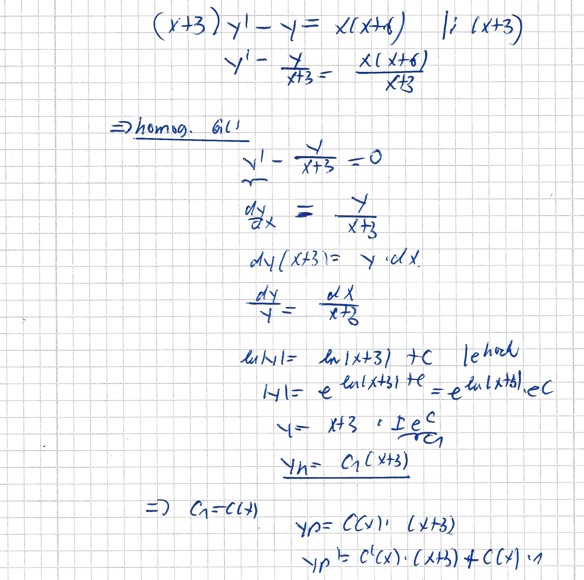 (x+3) y' - y = x(x+6) |: (x+3)
y' - y/(x+3) = x(x+6)/(x+3)
=> homog. Gl
y' - y/(x+3) = 0
dy/dx = y/(x+3)
dy(x+3) = y · dx
dy/y = dx/(x+3)
ln|y| = ln|x+3| + C |e hoch
|y| = e^(ln|x+3| + C) = e^(ln|x+3|) · e^C
y = x+3 · ± e^C C1
yh = C1 (x+3)
=> C1 = C(x)
yp = C(x) · (x+3)
yp' = C'(x) · (x+3) + C(x) · 1